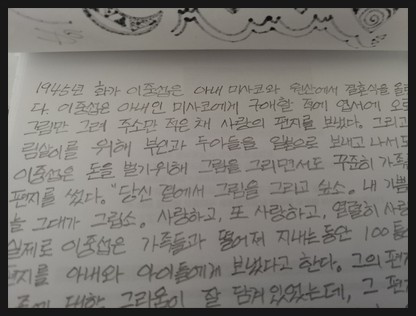 1945년 화가 이중섭은 아내 미사코와 원산에서 결혼식을 올렸
다. 이중섭은 아내인 미사코에게 구애할 적에 엽서에 오로
그림만 그려 주소만 적은 채 사랑의 편지를 보냈다. 그리고
림살이를 위해 부인과 두아들을 일본으로 보내고 나서도
이중섭은 돈을 벌기위해 그림을 그리면서도 꾸준히 가족
편지를 썼다. "당신 곁에서 그림을 그리고 싶소. 내 기쁨
늘 그대가 그립소. 사랑하고, 또 사랑하고, 열렬히 사랑
실제로 이중섭은 가족들과 떨어져 지내는 동안 100통
편지를 아내와 아이들에게 보냈다고 한다. 그의 편지
대한 그리움이 잘 담겨 있었는데, 그 편